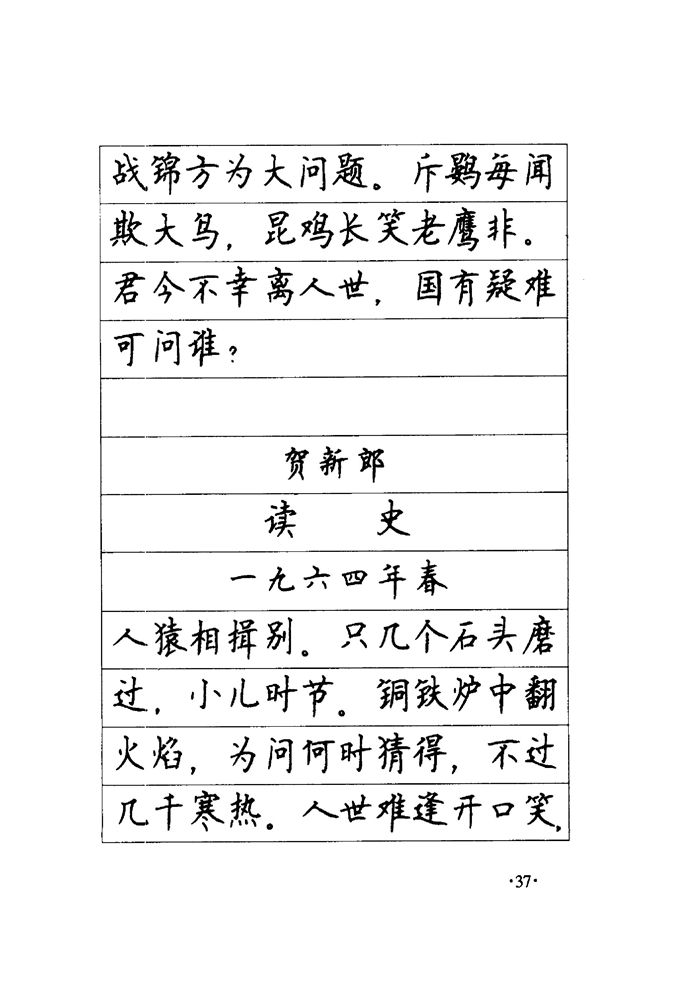 战锦方为大问题。斥鷃每闻
欺大鸟，昆鸡长笑老鹰非。
君今不幸离人世，国有疑难
可问谁？
贺新郎
读 史
一九六四年春
人猿相揖别。只几个石头磨
过，小儿时节。铜铁炉中翻
火焰，为问何时猜得，不过
几千寒热。人世难逢开口笑，
·37·